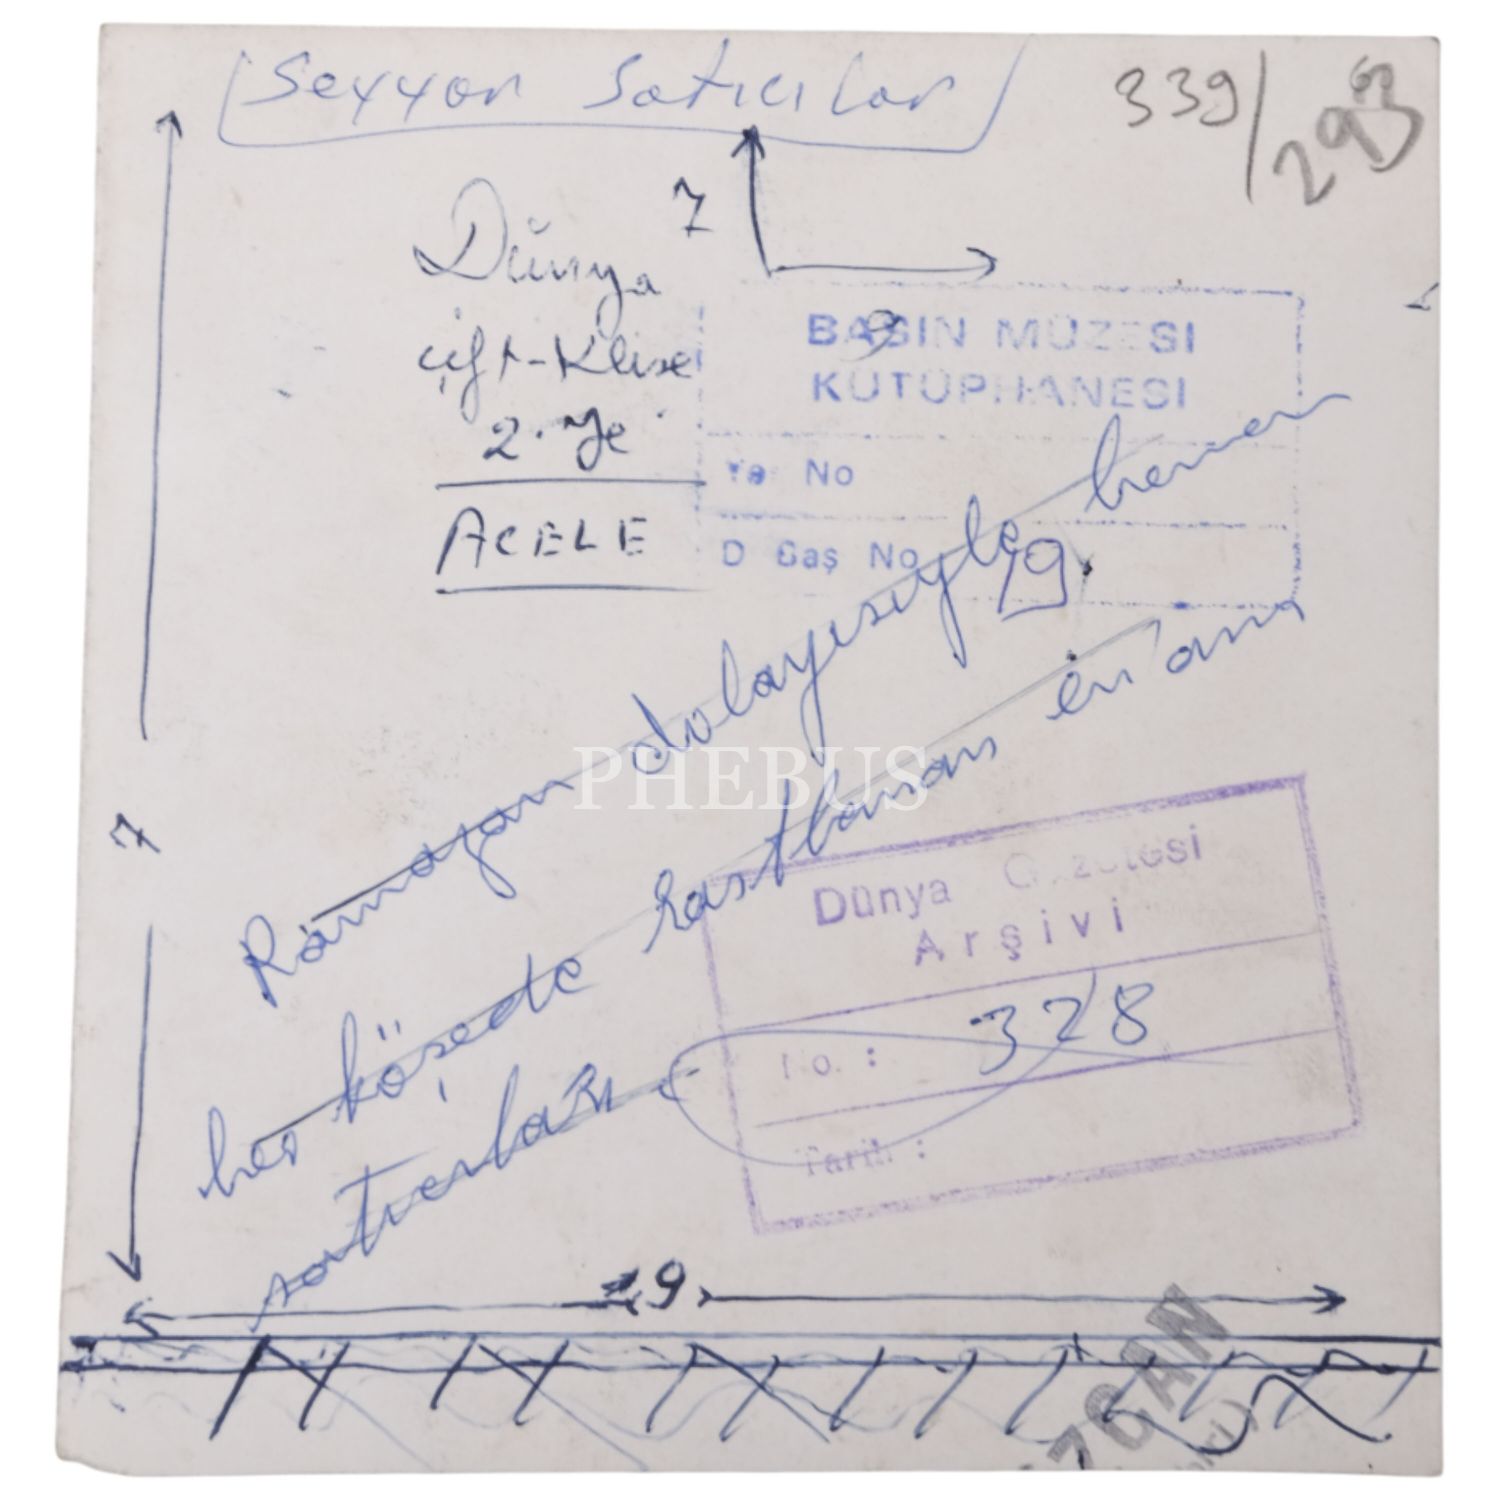 Seyyar Satıcılar
339/293
7
Dünya
çift-Klişe
2.ye
ACELE
9
BASIN MÜZESI
KÜTÜPHANESI
No
D Baş No
19
Ramazan dolayısıyle hemen
her köşede rastlanan
satıcıları
7
PHEBUS
Dünya Gazetesi
Arşivi
No. : 328
Tarih :
9
ZCAN